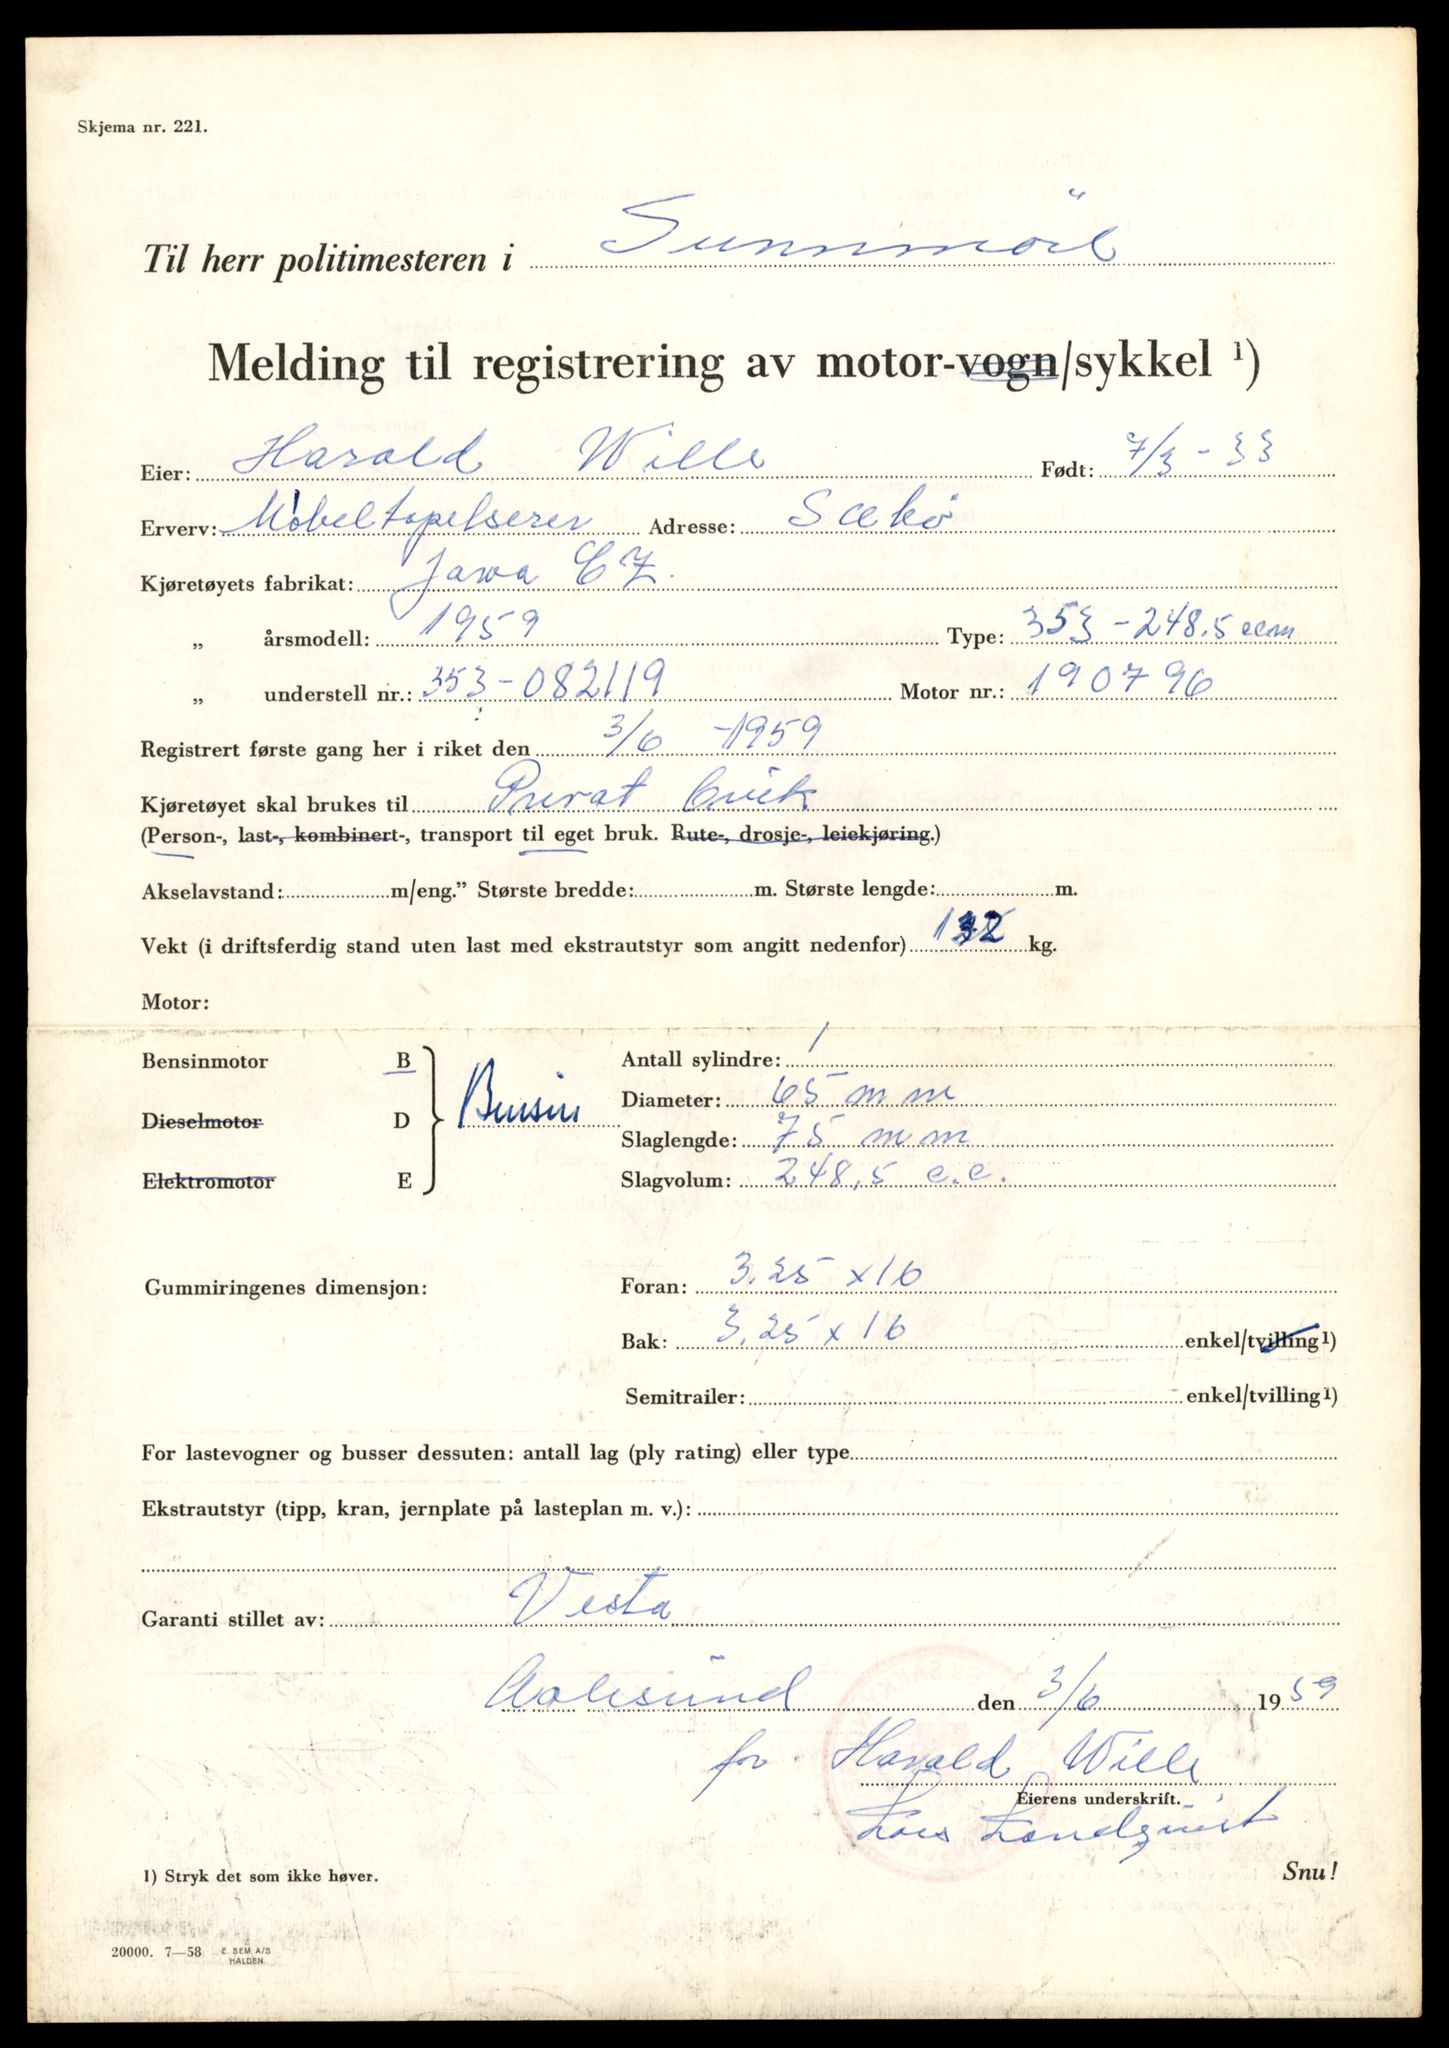 Skjema nr. 221.
Til herr politimesteren i Sunnmöre
Melding til registrering av motor-vogn/sykkel ¹)
Eier: Harald Wille Født: 7/3 - 33
Erverv: Møbeltapetserer Adresse: Sæbö
Kjøretøyets fabrikat: Jawa CZ.
„ årsmodell: 1959 Type: 353 - 248.5 ccm
„ understell nr.: 353 - 082119 Motor nr.: 190796
Registrert første gang her i riket den 3/6 - 1959
Kjøretøyet skal brukes til Privat bruk
(Person-, last-, kombinert-, transport til eget bruk. Rute-, drosje-, leiekjøring.)
Akselavstand: m/eng.” Største bredde: m. Største lengde: m.
Vekt (i driftsferdig stand uten last med ekstrautstyr som angitt nedenfor) 132 kg.
Motor:
Bensinmotor B Antall sylindre: 1
Diameter: 65 mm
Dieselmotor D Bensin
Slaglengde: 75 mm
Elektromotor E Slagvolum: 248,5 c.c.
Gummiringenes dimensjon: Foran: 3.25 x 16
Bak: 3.25 x 16 enkel/tvilling¹)
Semitrailer: enkel/tvilling¹)
For lastevogner og busser dessuten: antall lag (ply rating) eller type
Ekstrautstyr (tipp, kran, jernplate på lasteplan m. v.):
Garanti stillet av: Vesta
Aalesund den 3/6 1959
for. Harald Wille
Eierens underskrift.
Lars Landquist
1) Stryk det som ikke høver. Snu!
20000. 7—58 E. SEM A/S
HALDEN